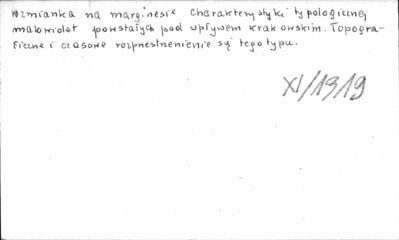 Wzmianka na marginesie charakterystyki typologicznej
malowideł powstałych pod wpływem krakowskim. Topogra-
ficzne i czasowe rozprzestrzenienie się tego typu.
XI/1319